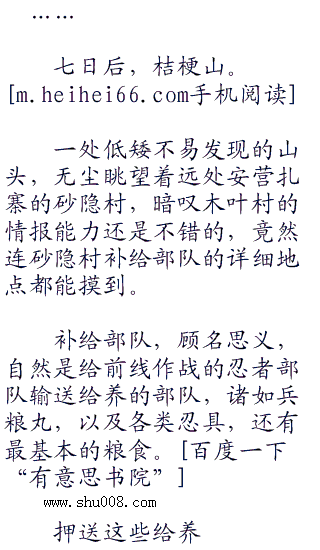 ……
七日后，桔梗山。
[m.heihei66.com手机阅读]
一处低矮不易发现的山
头，无尘眺望着远处安营扎
寨的砂隐村，暗叹木叶村的
情报能力还是不错的，竟然
连砂隐村补给部队的详细地
点都能摸到。
补给部队，顾名思义，
自然是给前线作战的忍者部
队输送给养的部队，诸如兵
粮丸，以及各类忍具，还有
最基本的粮食。[百度一下
“有意思书院”]
www.shu008.com
押送这些给养